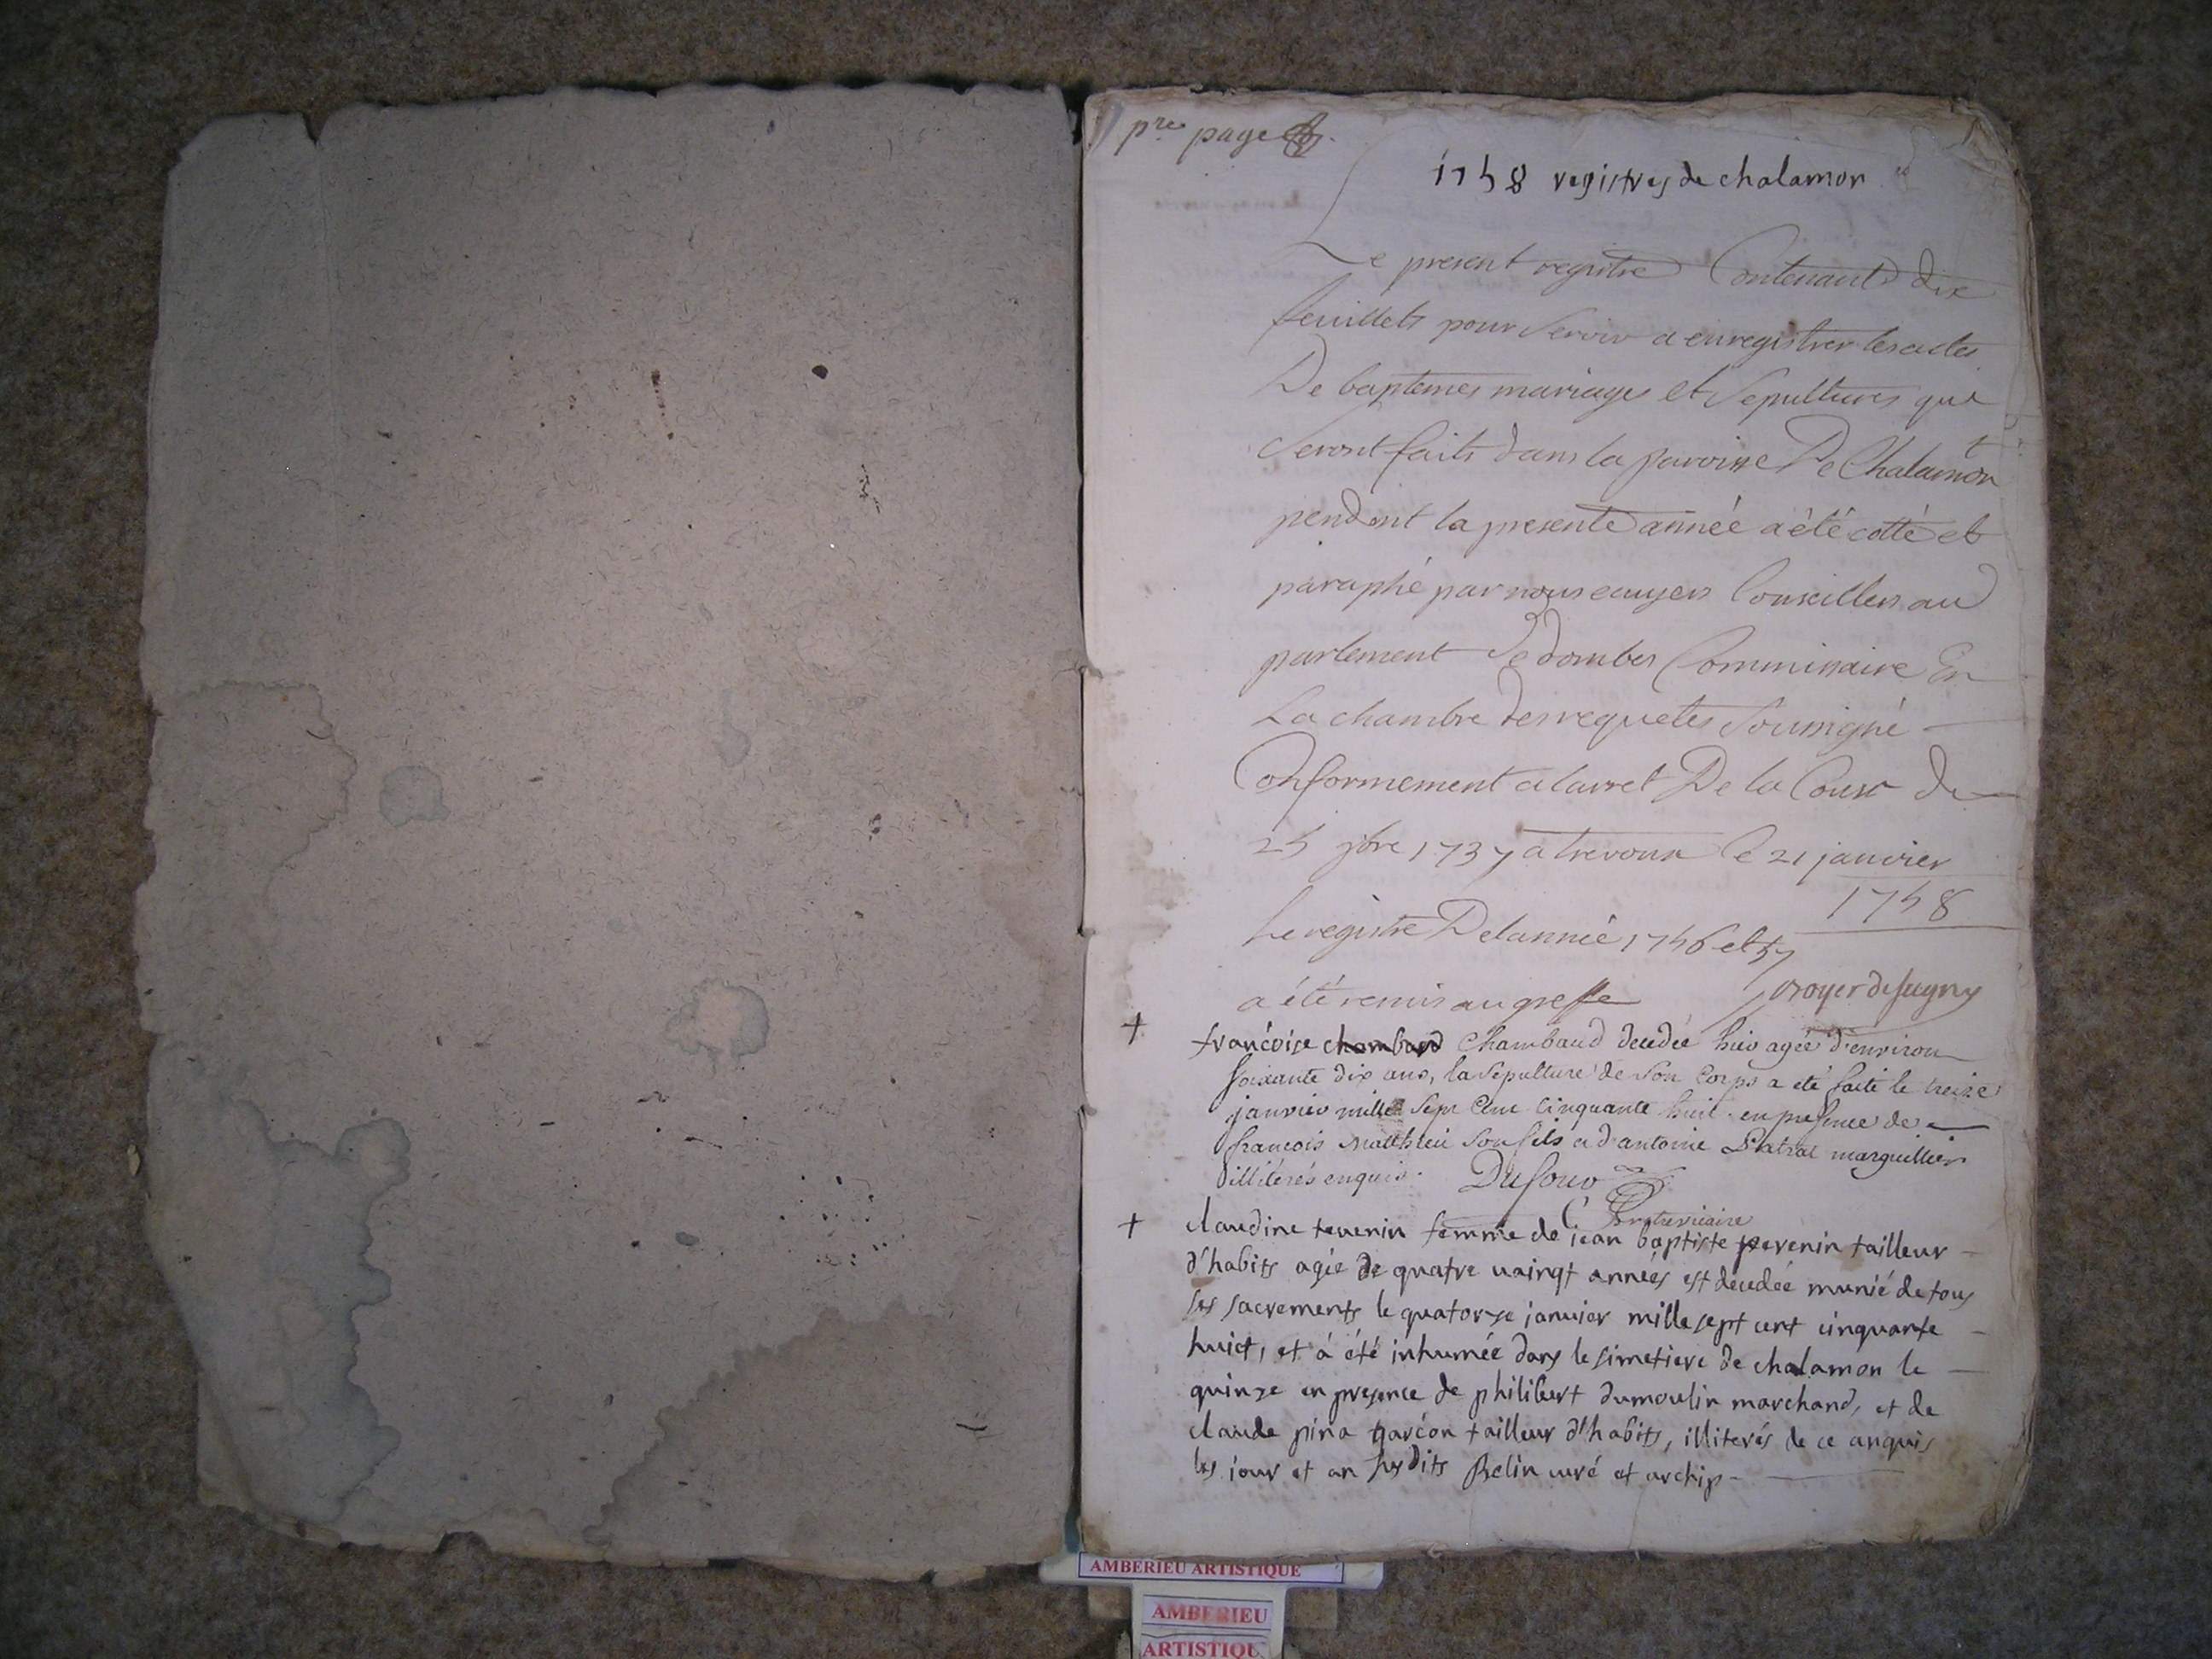 pre page
1758 registres de chalamon
Le present registre Contenant dix
feuillets pour Servir a enregistrer les actes
De baptemes mariages et Sepultures qui
Seront faits dans la paroisse De Chalamont
pendant la presente année a été cotté et
paraphé par nous ecuyer Conseiller au
parlement de dombes Commissaire En
La chambre des requetes Soussigné
Conformement a larret De la Cour de
25 9bre 1737 a trevoux le 21 janvier
1758
Le registre De lannée 1756 et 57
a été remis au greffe
françoise chambard Chambaud decedée hier agée d'environ
soixante dix ans, la Sepulture de Son Corps a eté faite le treize
janvier mille Sept Cent Cinquante huit en presence de
françois Matthieu Son fils et d'antoine Patral marguillier
illiterés enquis. Dufour
Pretre vicaire
claudine tevenin femme de jean baptiste pevenin tailleur
d'habits agée de quatre vaingt années est decedée munié de tous
ses sacrements le quatorze janvier mille sept cent cinquante
huict, et á été inhumée dans le simetiere de chalamon le
quinze en presence de philibert dumoulin marchand, et de
claude pina garcon tailleur d'habits, illiterés de ce anquis
les jour et an susdits Belin curé et archip
AMBERIEU ARTISTIQUE
AMBERIEU
ARTISTIQU